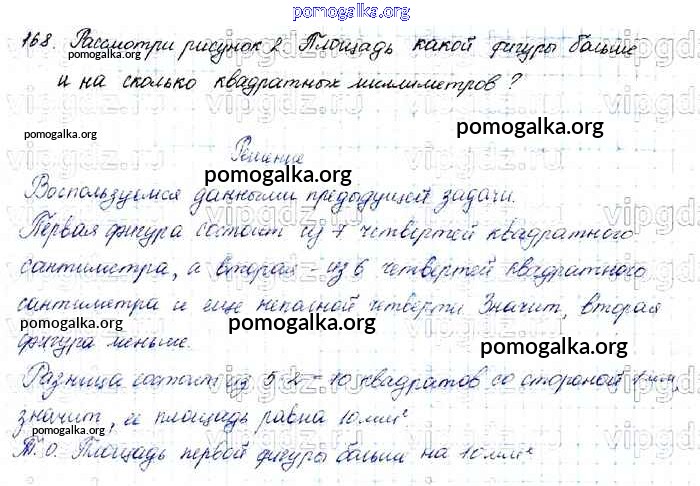 pomogalka.org
168. Рассмотри рисунок 2. Площадь какой фигуры больше
и на сколько квадратных миллиметров?
pomogalka.org
pomogalka.org
Решение
pomogalka.org
Воспользуемся данными предыдущей задачи.
Первая фигура состоит из 7 четвертей квадратного
pomogalka.org
сантиметра, а вторая – из 6 четвертей квадратного
сантиметра и еще неполной четверти. Значит, вторая
pomogalka.org
pomogalka.org
фигура меньше.
pomogalka.org
Разница состоит из 5·2 = 10 квадратов со стороной 1 мм,
значит, ее площадь равна 10 мм²
pomogalka.org
Т. о. Площадь первой фигуры больше на 10 мм²
pomogalka.org